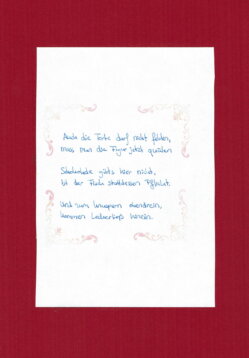 Auch die Torte darf nicht fehlen,
muss man die Figur jetzt quälen
Schokolade gibt's hier nicht,
ist der Fluch stattdessen Pflicht.
Und zum knuspern obendrein,
kommen Leckerlis hinein.